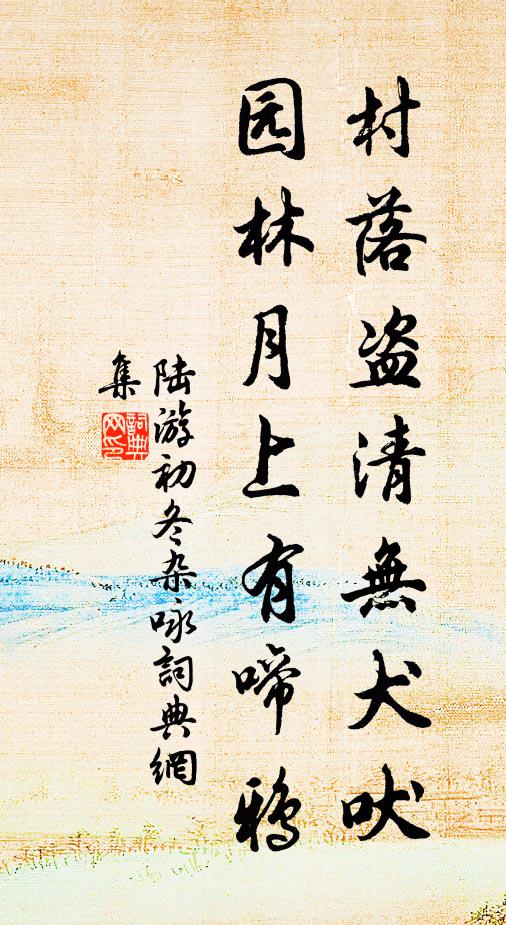 村落盗清無犬吠
园林月上有啼鴉
陆游初冬杂咏詞典網
集
詞典
网印